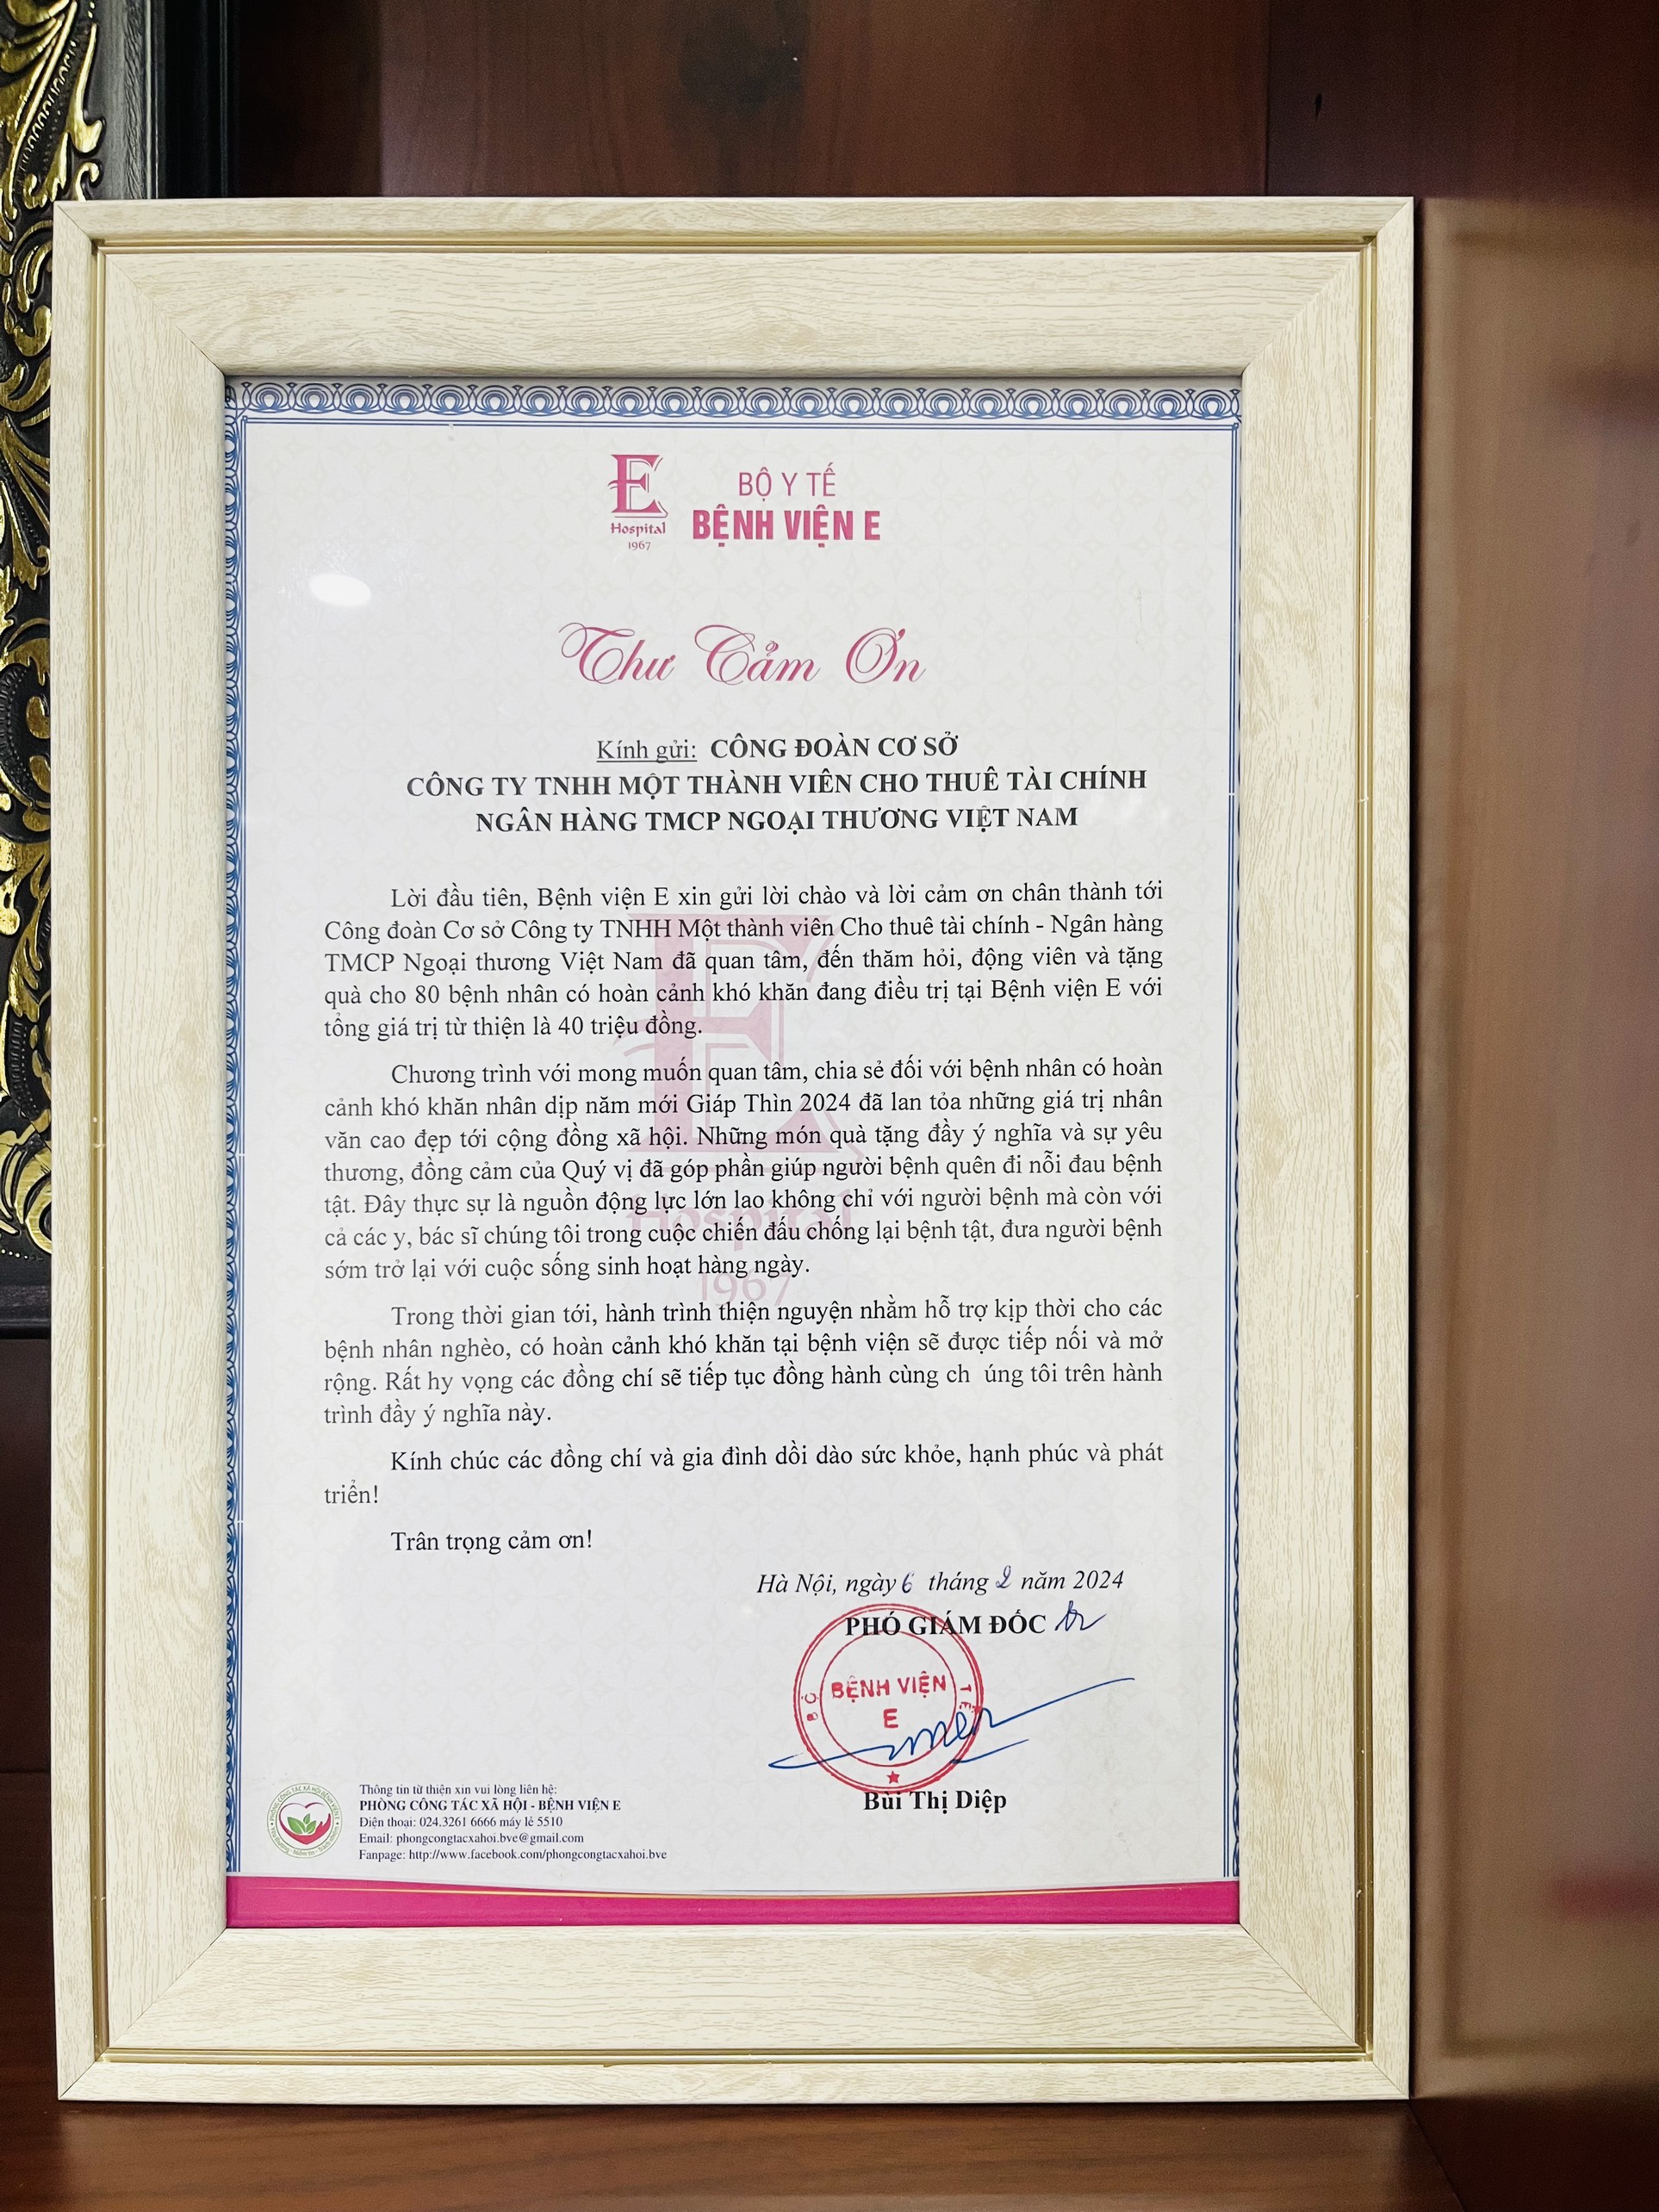 E
Hospital
1967
BỘ Y TẾ
BỆNH VIỆN E
Thư Cảm Ơn
Kính gửi: CÔNG ĐOÀN CƠ SỞ
CÔNG TY TNHH MỘT THÀNH VIÊN CHO THUÊ TÀI CHÍNH
NGÂN HÀNG TMCP NGOẠI THƯƠNG VIỆT NAM
Lời đầu tiên, Bệnh viện E xin gửi lời chào và lời cảm ơn chân thành tới
Công đoàn Cơ sở Công ty TNHH Một thành viên Cho thuê tài chính - Ngân hàng
TMCP Ngoại thương Việt Nam đã quan tâm, đến thăm hỏi, động viên và tặng
quà cho 80 bệnh nhân có hoàn cảnh khó khăn đang điều trị tại Bệnh viện E với
tổng giá trị từ thiện là 40 triệu đồng.
Chương trình với mong muốn quan tâm, chia sẻ đối với bệnh nhân có hoàn
cảnh khó khăn nhân dịp năm mới Giáp Thìn 2024 đã lan tỏa những giá trị nhân
văn cao đẹp tới cộng đồng xã hội. Những món quà tặng đầy ý nghĩa và sự yêu
thương, đồng cảm của Quý vị đã góp phần giúp người bệnh quên đi nỗi đau bệnh
tật. Đây thực sự là nguồn động lực lớn lao không chỉ với người bệnh mà còn với
cả các y, bác sĩ chúng tôi trong cuộc chiến đấu chống lại bệnh tật, đưa người bệnh
sớm trở lại với cuộc sống sinh hoạt hàng ngày.
Trong thời gian tới, hành trình thiện nguyện nhằm hỗ trợ kịp thời cho các
bệnh nhân nghèo, có hoàn cảnh khó khăn tại bệnh viện sẽ được tiếp nối và mở
rộng. Rất hy vọng các đồng chí sẽ tiếp tục đồng hành cùng ch úng tôi trên hành
trình đầy ý nghĩa này.
Kính chúc các đồng chí và gia đình dồi dào sức khỏe, hạnh phúc và phát
triển!
Trân trọng cảm ơn!
Hà Nội, ngày 6 tháng 2 năm 2024
PHÓ GIÁM ĐỐC
BỆNH VIỆN
E
Bùi Thị Diệp
Thông tin từ thiện xin vui lòng liên hệ:
PHÒNG CÔNG TÁC XÃ HỘI - BỆNH VIỆN E
Điện thoại: 024.3261 6666 máy lẻ 5510
Email: phongcongtacxahoi.bve@gmail.com
Fanpage: http://www.facebook.com/phongcongtacxahoi.bve